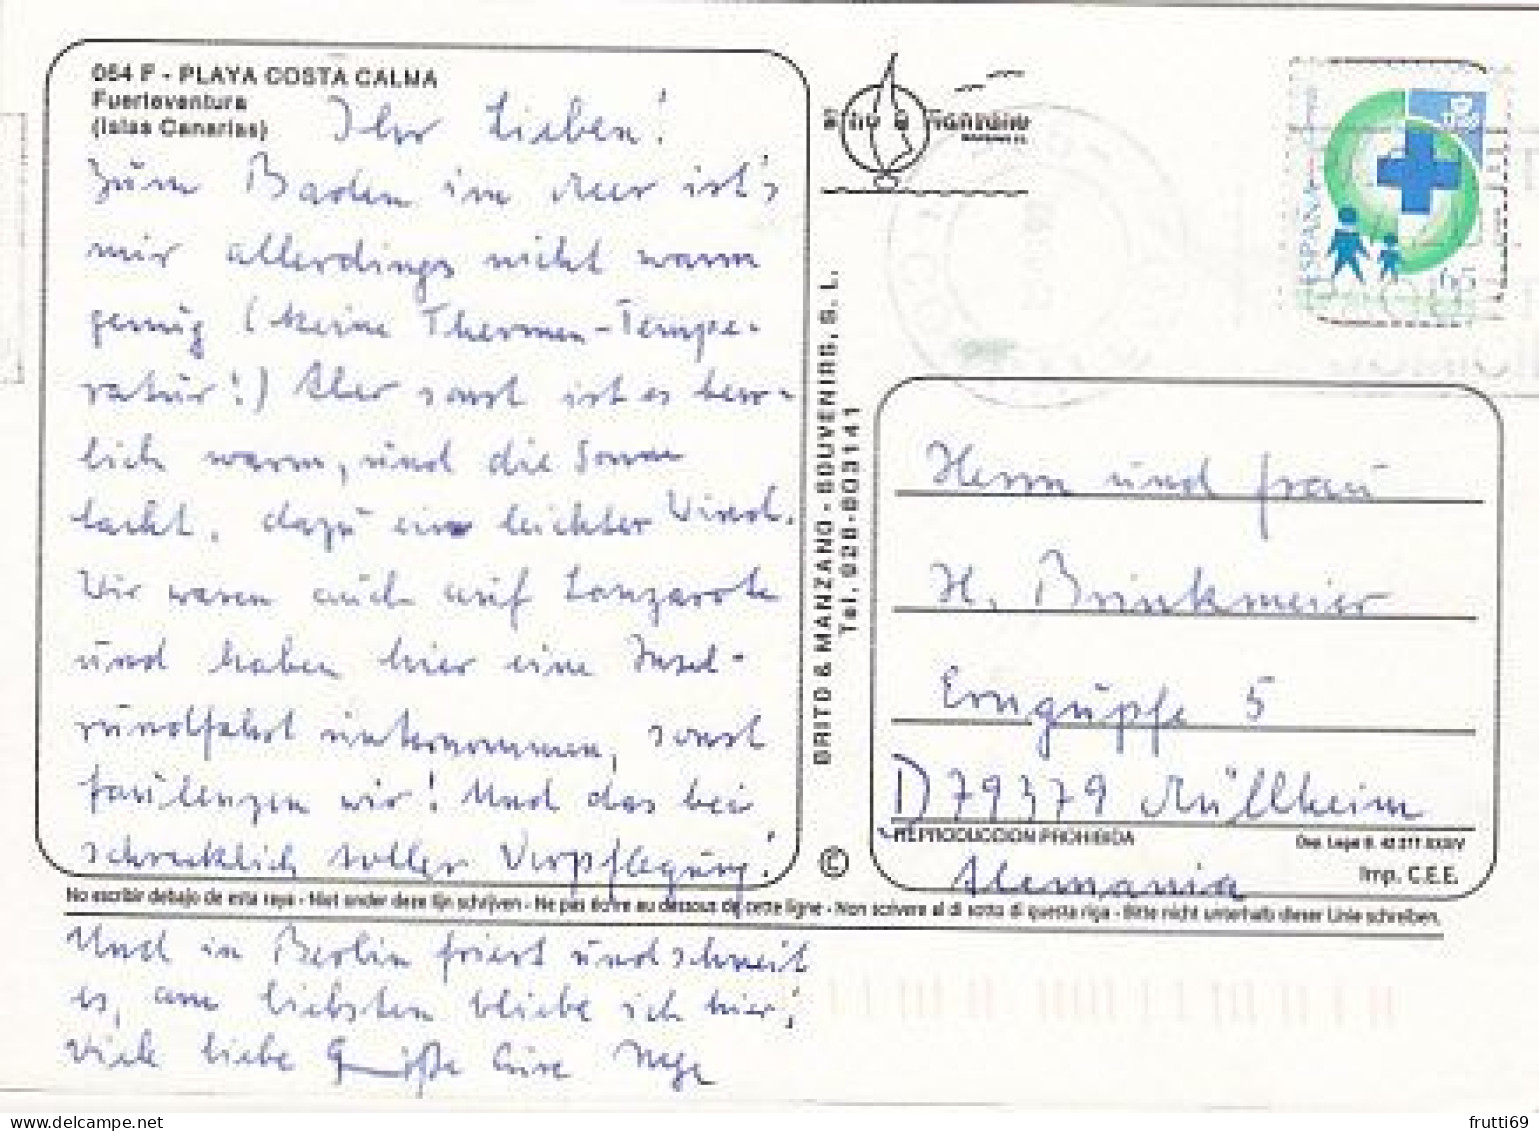 054 F - PLAYA COSTA CALMA
Fuerteventura
(Islas Canarias)
Ihr Lieben!
Zum Baden im Meer ist's
mir allerdings nicht warm
genug (keine Thermen-Tempe-
ratur!) Aber sonst ist es herr-
lich warm, und die Sonne
lacht, dazu ein leichter Wind.
Wir waren auch auf Lanzarote
und haben hier eine Insel-
rundfahrt unternommen, sonst
faulenzen wir! Und das bei
schrecklich toller Verpflegung!
No escribir debajo de esta raya - Niet onder deze lijn schrijven - Ne pas écrire au dessous de cette ligne - Non scrivere al di sotto di questa riga - Bitte nicht unterhalb dieser Linie schreiben.
Und in Berlin friert und schneit
es, am liebsten bliebe ich hier!
Viele liebe Grüße Eure
BRITO & MANZANO - SOUVENIRS, S. L.
Tel. 928-803141
©
ESPAÑA
65
Herrn und Frau
H. Brinkmeier
Erngupfe 5
D 79379 Müllheim
REPRODUCCION PROHIBIDA
Imp. C.E.E.
Alemania
delcampe.net
frutti69